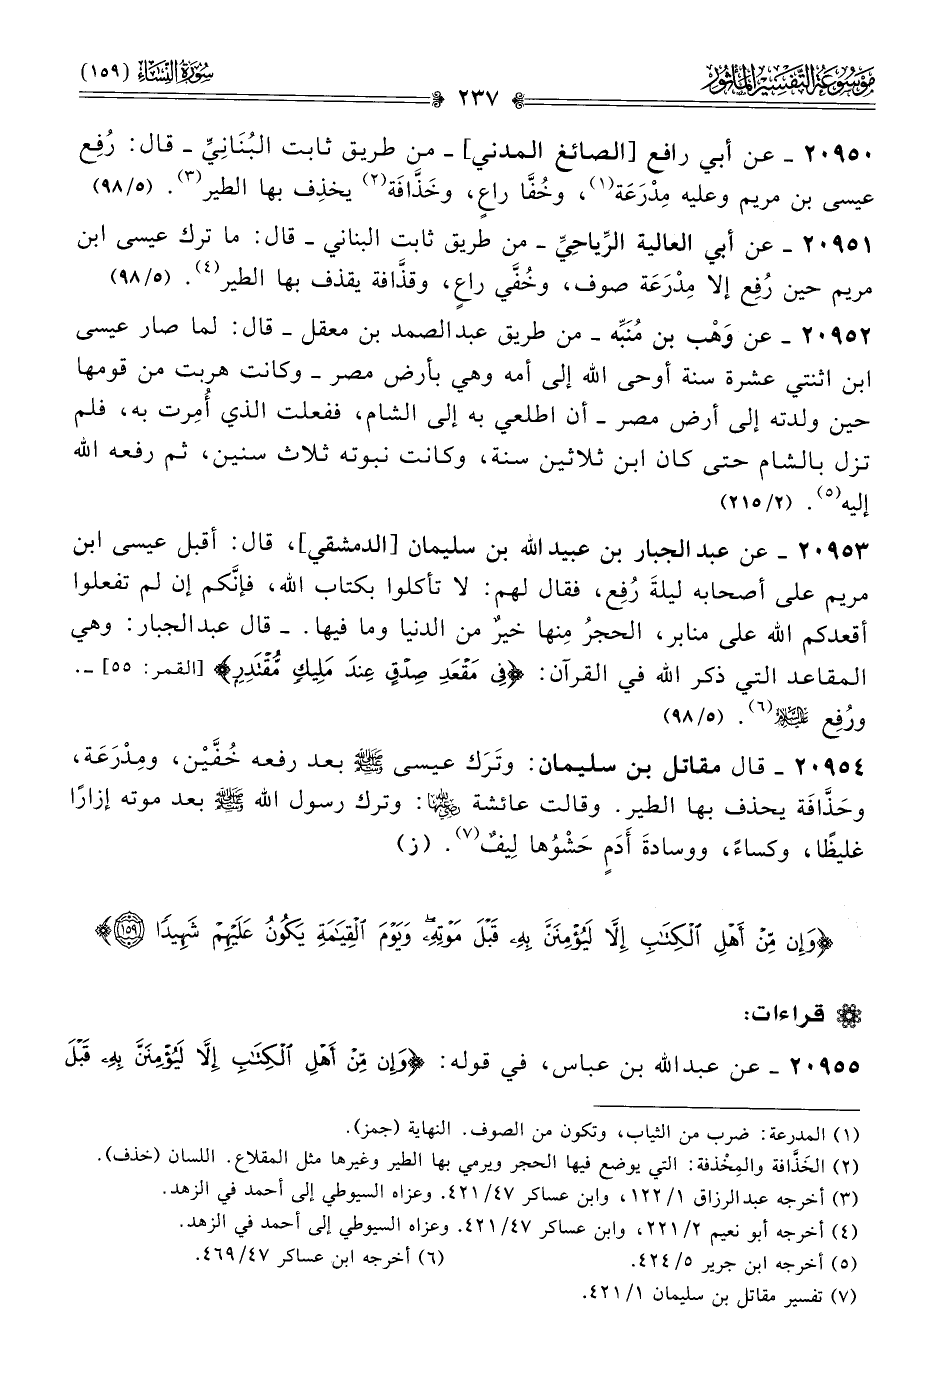 موسوعة التفسير المأثور
سورة النساء (١٥٩)
٢٣٧
٢٠٩٥٠ ـ عن أبي رافع [الصائغ المدني] ـ من طريق ثابت البُنَانِيِّ ـ قال: رُفِع
عيسى بن مريم وعليه مِدْرَعَة(١)، وخُفَّا راعٍ، وخَذَّافَة(٢) يخذِف بها الطير(٣). (٩٨/٥)
٢٠٩٥١ ـ عن أبي العالية الرِّياحِيِّ ـ من طريق ثابت البناني ـ قال: ما ترك عيسى ابن
مريم حين رُفِع إلا مِدْرَعَة صوف، وخُفَّي راعٍ، وقذَّافة يقذف بها الطير(٤). (٩٨/٥)
٢٠٩٥٢ ـ عن وَهْب بن مُنَبِّه ـ من طريق عبدالصمد بن معقل ـ قال: لما صار عيسى
ابن اثنتي عشرة سنة أوحى الله إلى أمه وهي بأرض مصر ـ وكانت هربت من قومها
حين ولدته إلى أرض مصر ـ أن اطلعي به إلى الشام، ففعلت الذي أُمِرت به، فلم
تزل بالشام حتى كان ابن ثلاثين سنة، وكانت نبوته ثلاث سنين، ثم رفعه الله
إليه(٥). (٢١٥/٢)
٢٠٩٥٣ ـ عن عبدالجبار بن عبيدالله بن سليمان [الدمشقي]، قال: أقبل عيسى ابن
مريم على أصحابه ليلةَ رُفِع، فقال لهم: لا تأكلوا بكتاب الله، فإنَّكم إن لم تفعلوا
أقعدكم الله على منابر، الحجرُ مِنها خيرٌ من الدنيا وما فيها. ـ قال عبدالجبار: وهي
المقاعد التي ذكر الله في القرآن: ﴿فِى مَقْعَدِ صِدْقٍ عِندَ مَلِيكٍ مُّقْتَدِرٍ﴾ [القمر: ٥٥] ـ.
ورُفِع عليه السلام(٦). (٩٨/٥)
٢٠٩٥٤ ـ قال مقاتل بن سليمان: وتَرَك عيسى ﷺ بعد رفعه خُفَّيْن، ومِدْرَعَة،
وحَذَّافَة يحذف بها الطير. وقالت عائشة رضي الله عنها: وترك رسول الله ﷺ بعد موته إزارًا
غليظًا، وكساءً، ووسادةَ أَدَمٍ حَشْوُها لِيفٌ(٧). (ز)
﴿وَإِن مِّنْ أَهْلِ ٱلْكِتَٰبِ إِلَّا لَيُؤْمِنَنَّ بِهِۦ قَبْلَ مَوْتِهِۦۖ وَيَوْمَ ٱلْقِيَٰمَةِ يَكُونُ عَلَيْهِمْ شَهِيدًا ١٥٩﴾
قراءات:
٢٠٩٥٥ ـ عن عبدالله بن عباس، في قوله: ﴿وَإِن مِّنْ أَهْلِ ٱلْكِتَٰبِ إِلَّا لَيُؤْمِنَنَّ بِهِۦ قَبْلَ
(١) المدرعة: ضرب من الثياب، وتكون من الصوف. النهاية (جمز).
(٢) الخَذَّافة والمِخْذفة: التي يوضع فيها الحجر ويرمي بها الطير وغيرها مثل المقلاع. اللسان (خذف).
(٣) أخرجه عبدالرزاق ١٢٢/١، وابن عساكر ٤٢١/٤٧. وعزاه السيوطي إلى أحمد في الزهد.
(٤) أخرجه أبو نعيم ٢٢١/٢، وابن عساكر ٤٢١/٤٧. وعزاه السيوطي إلى أحمد في الزهد.
(٥) أخرجه ابن جرير ٤٢٤/٥. (٦) أخرجه ابن عساكر ٤٦٩/٤٧.
(٧) تفسير مقاتل بن سليمان ٤٢١/١.